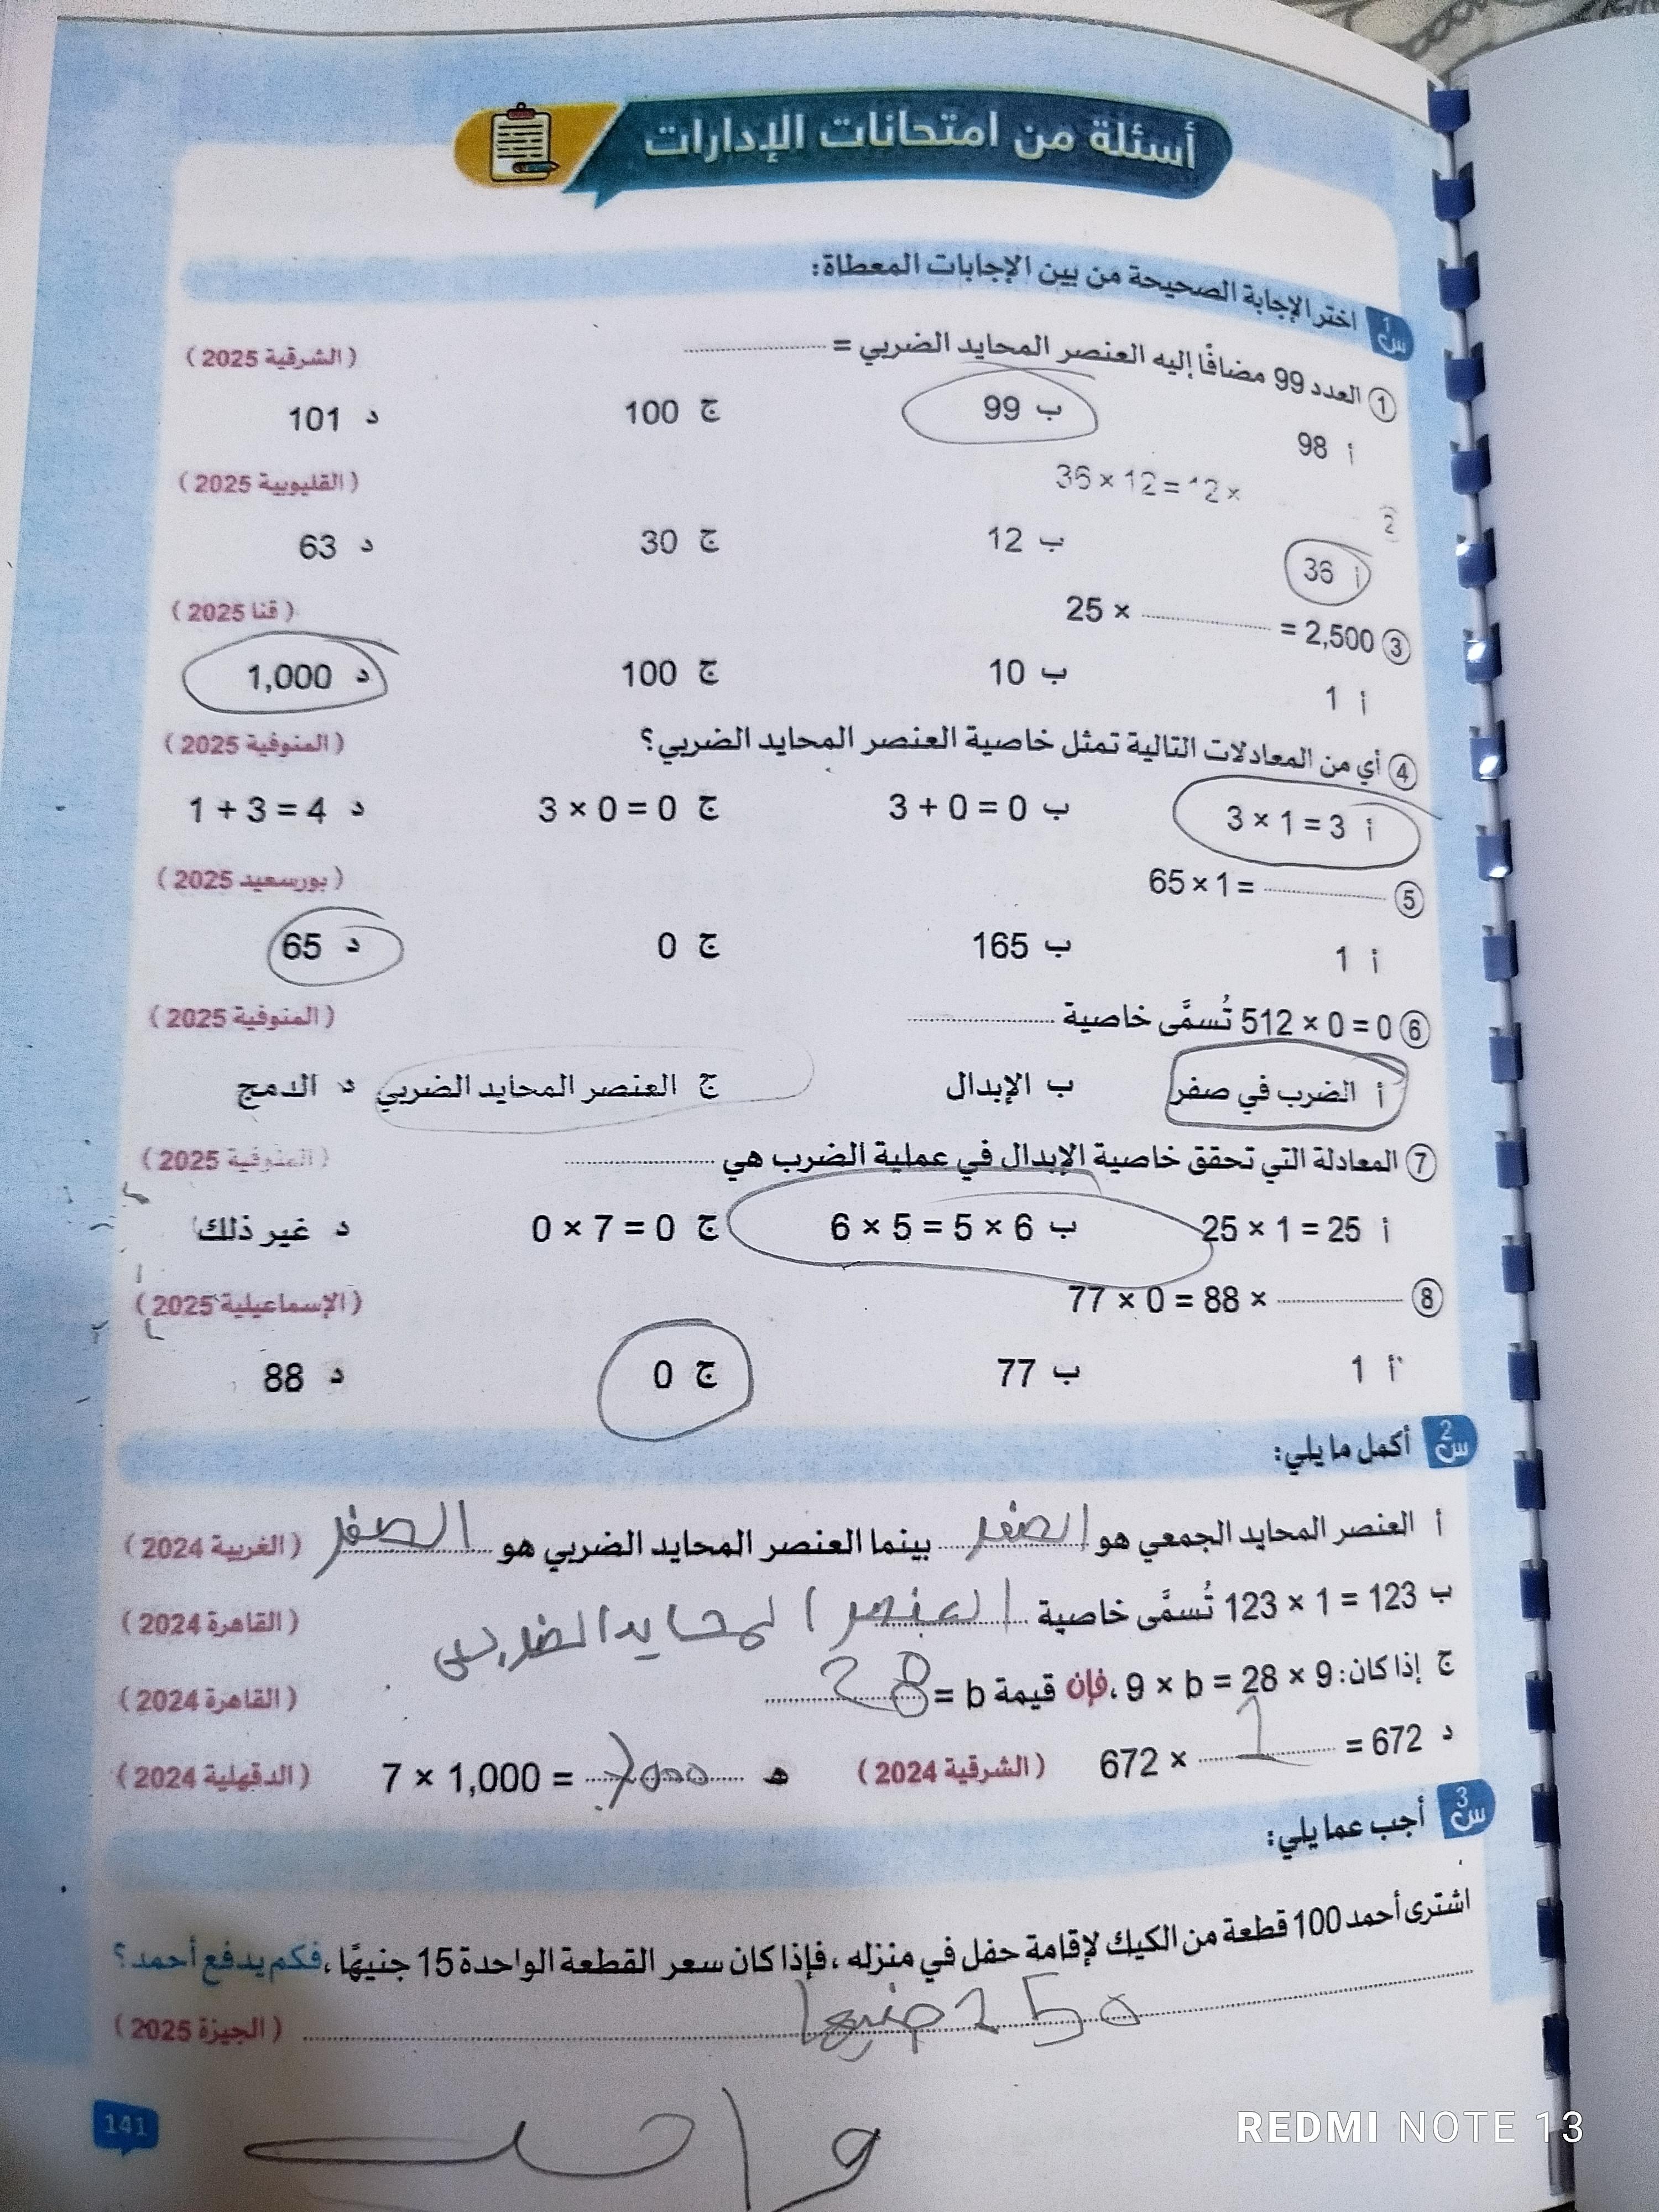 أسئلة من امتحانات الإدارات
س1 اختر الإجابة الصحيحة من بين الإجابات المعطاة:
1 العدد 99 مضافًا إليه العنصر المحايد الضربي = ............ (الشرقية 2025)
أ 98 ب 99 ج 100 د 101
2 36 × 12 = 12 × (القليوبية 2025)
أ 36 ب 12 ج 30 د 63
3 25 × ............ = 2,500 (قنا 2025)
أ 1 ب 10 ج 100 د 1,000
4 أي من المعادلات التالية تمثل خاصية العنصر المحايد الضربي؟ (المنوفية 2025)
أ 3 × 1 = 3 ب 3 + 0 = 0 ج 3 × 0 = 0 د 1 + 3 = 4
5 65 × 1 = ............ (بورسعيد 2025)
أ 1 ب 165 ج 0 د 65
6 512 × 0 = 0 تُسمَّى خاصية ............ (المنوفية 2025)
أ الضرب في صفر ب الإبدال ج العنصر المحايد الضربي د الدمج
7 المعادلة التي تحقق خاصية الإبدال في عملية الضرب هي ............ (المنوفية 2025)
أ 25 × 1 = 25 ب 6 × 5 = 5 × 6 ج 0 × 7 = 0 د غير ذلك
8 77 × 0 = 88 × ............ (الإسماعيلية 2025)
أ 1 ب 77 ج 0 د 88
س2 أكمل ما يلي:
أ العنصر المحايد الجمعي هو الصفر بينما العنصر المحايد الضربي هو الصفر (الغربية 2024)
ب 123 × 1 = 123 تُسمَّى خاصية العنصر المحايد الضربي (القاهرة 2024)
ج إذا كان: 9 × b = 28 × 9، فإن قيمة b = 28 (القاهرة 2024)
د 672 × 1 = 672 (الشرقية 2024) هـ 7 × 1,000 = 7000 (الدقهلية 2024)
س3 أجب عما يلي:
اشترى أحمد 100 قطعة من الكيك لإقامة حفل في منزله، فإذا كان سعر القطعة الواحدة 15 جنيهًا، فكم يدفع أحمد؟
(الجيزة 2025)
141
REDMI NOTE 13